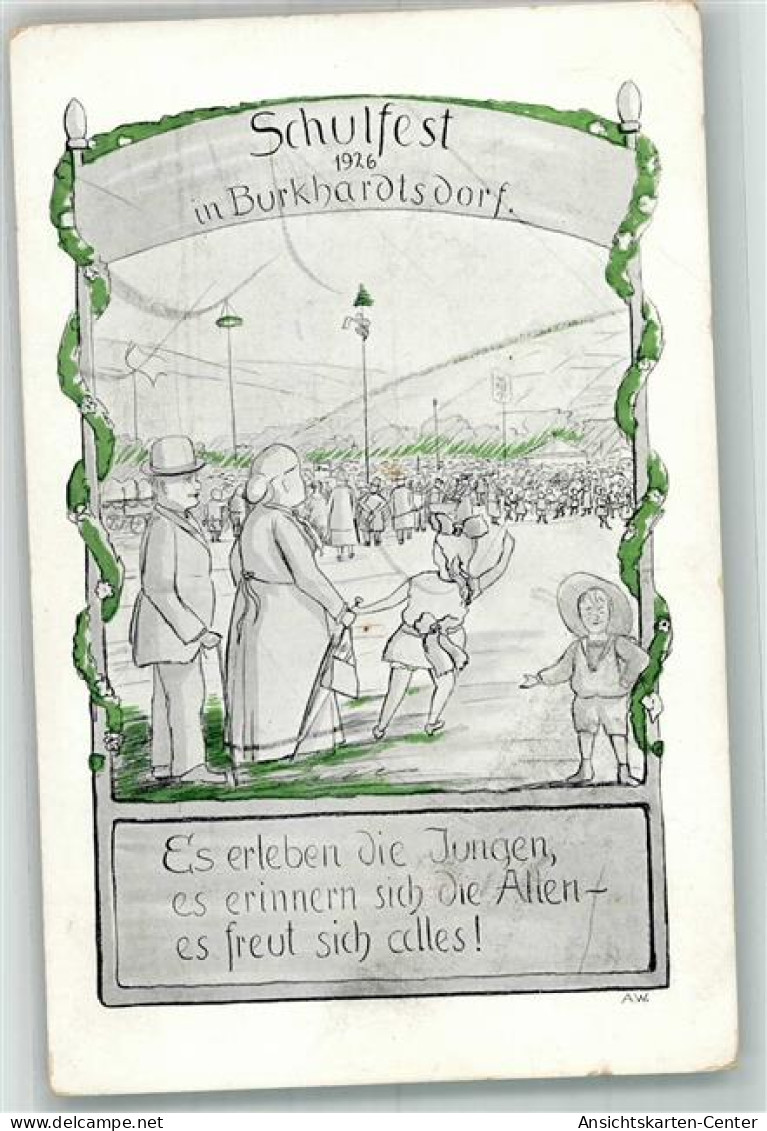 Schulfest
1926
in Burkhardtsdorf.
Es erleben die Jungen,
es erinnern sich die Alten –
es freut sich alles!
A.W.
Ansichtskarten-Center